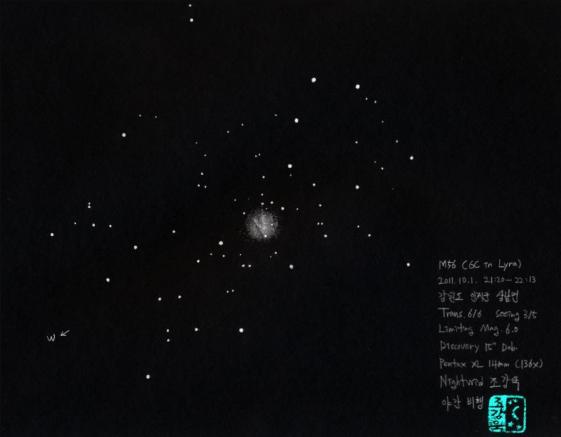 W
M56 (GC in Lyra)
2011.10.1. 21:20~22:13
강원도 인제군 상남면
Trans. 6/6 Seeing 3/5
Limiting Mag. 6.0
Discovery 15" Dob.
Pentax XL 14mm (136x)
Nightwid 조강욱
야간비행
조강욱